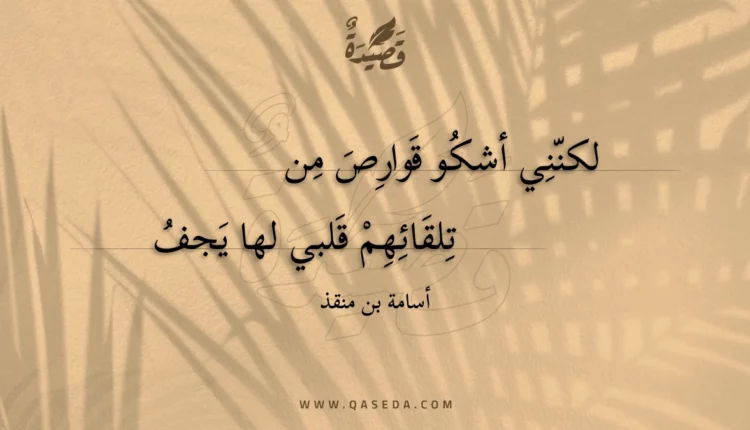 قَصِيدَةٌ
لكنّنِي أشكُو قَوارِصَ مِن
تِلقَائِهِمْ قَلبي لها يَجفُ
أسامة بن منقذ
WWW.QASEDA.COM